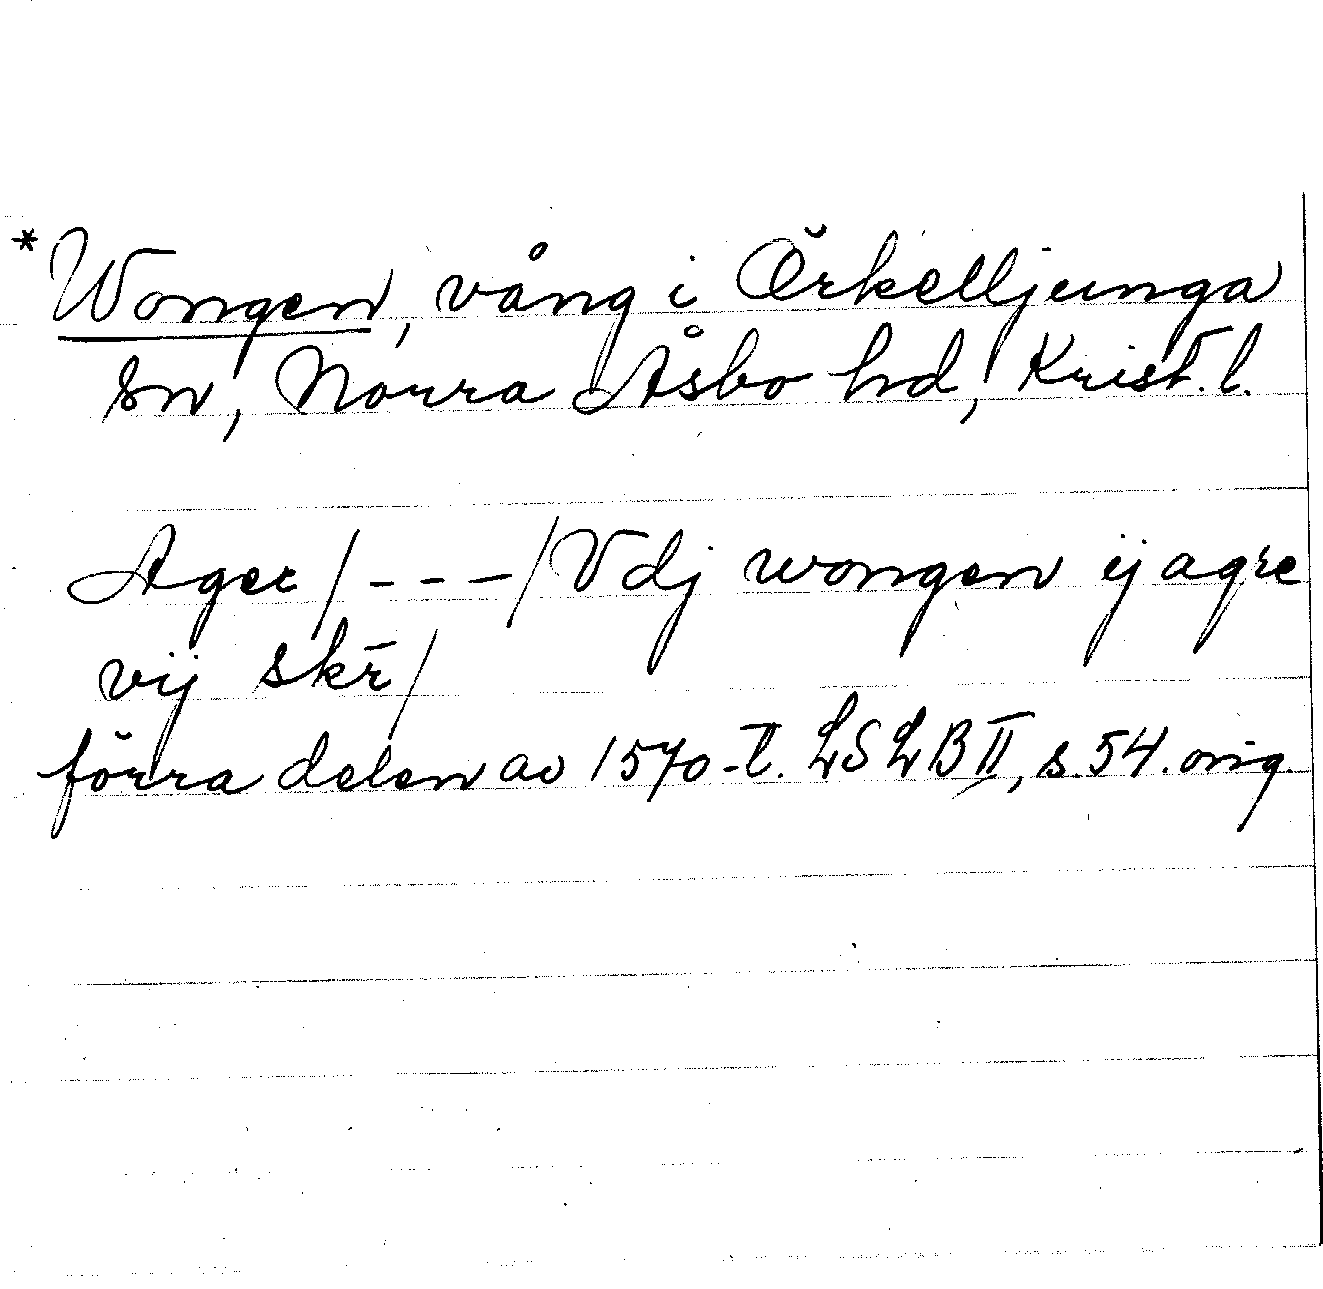 *Wongen, vång i Örkelljunga
sn, Norra Åsbo hd, Krist. l.
Ager/---/Vdj wongen ij agre
vij skr̄/
förra delen av 1570-t. LSLB II, s. 54. orig.